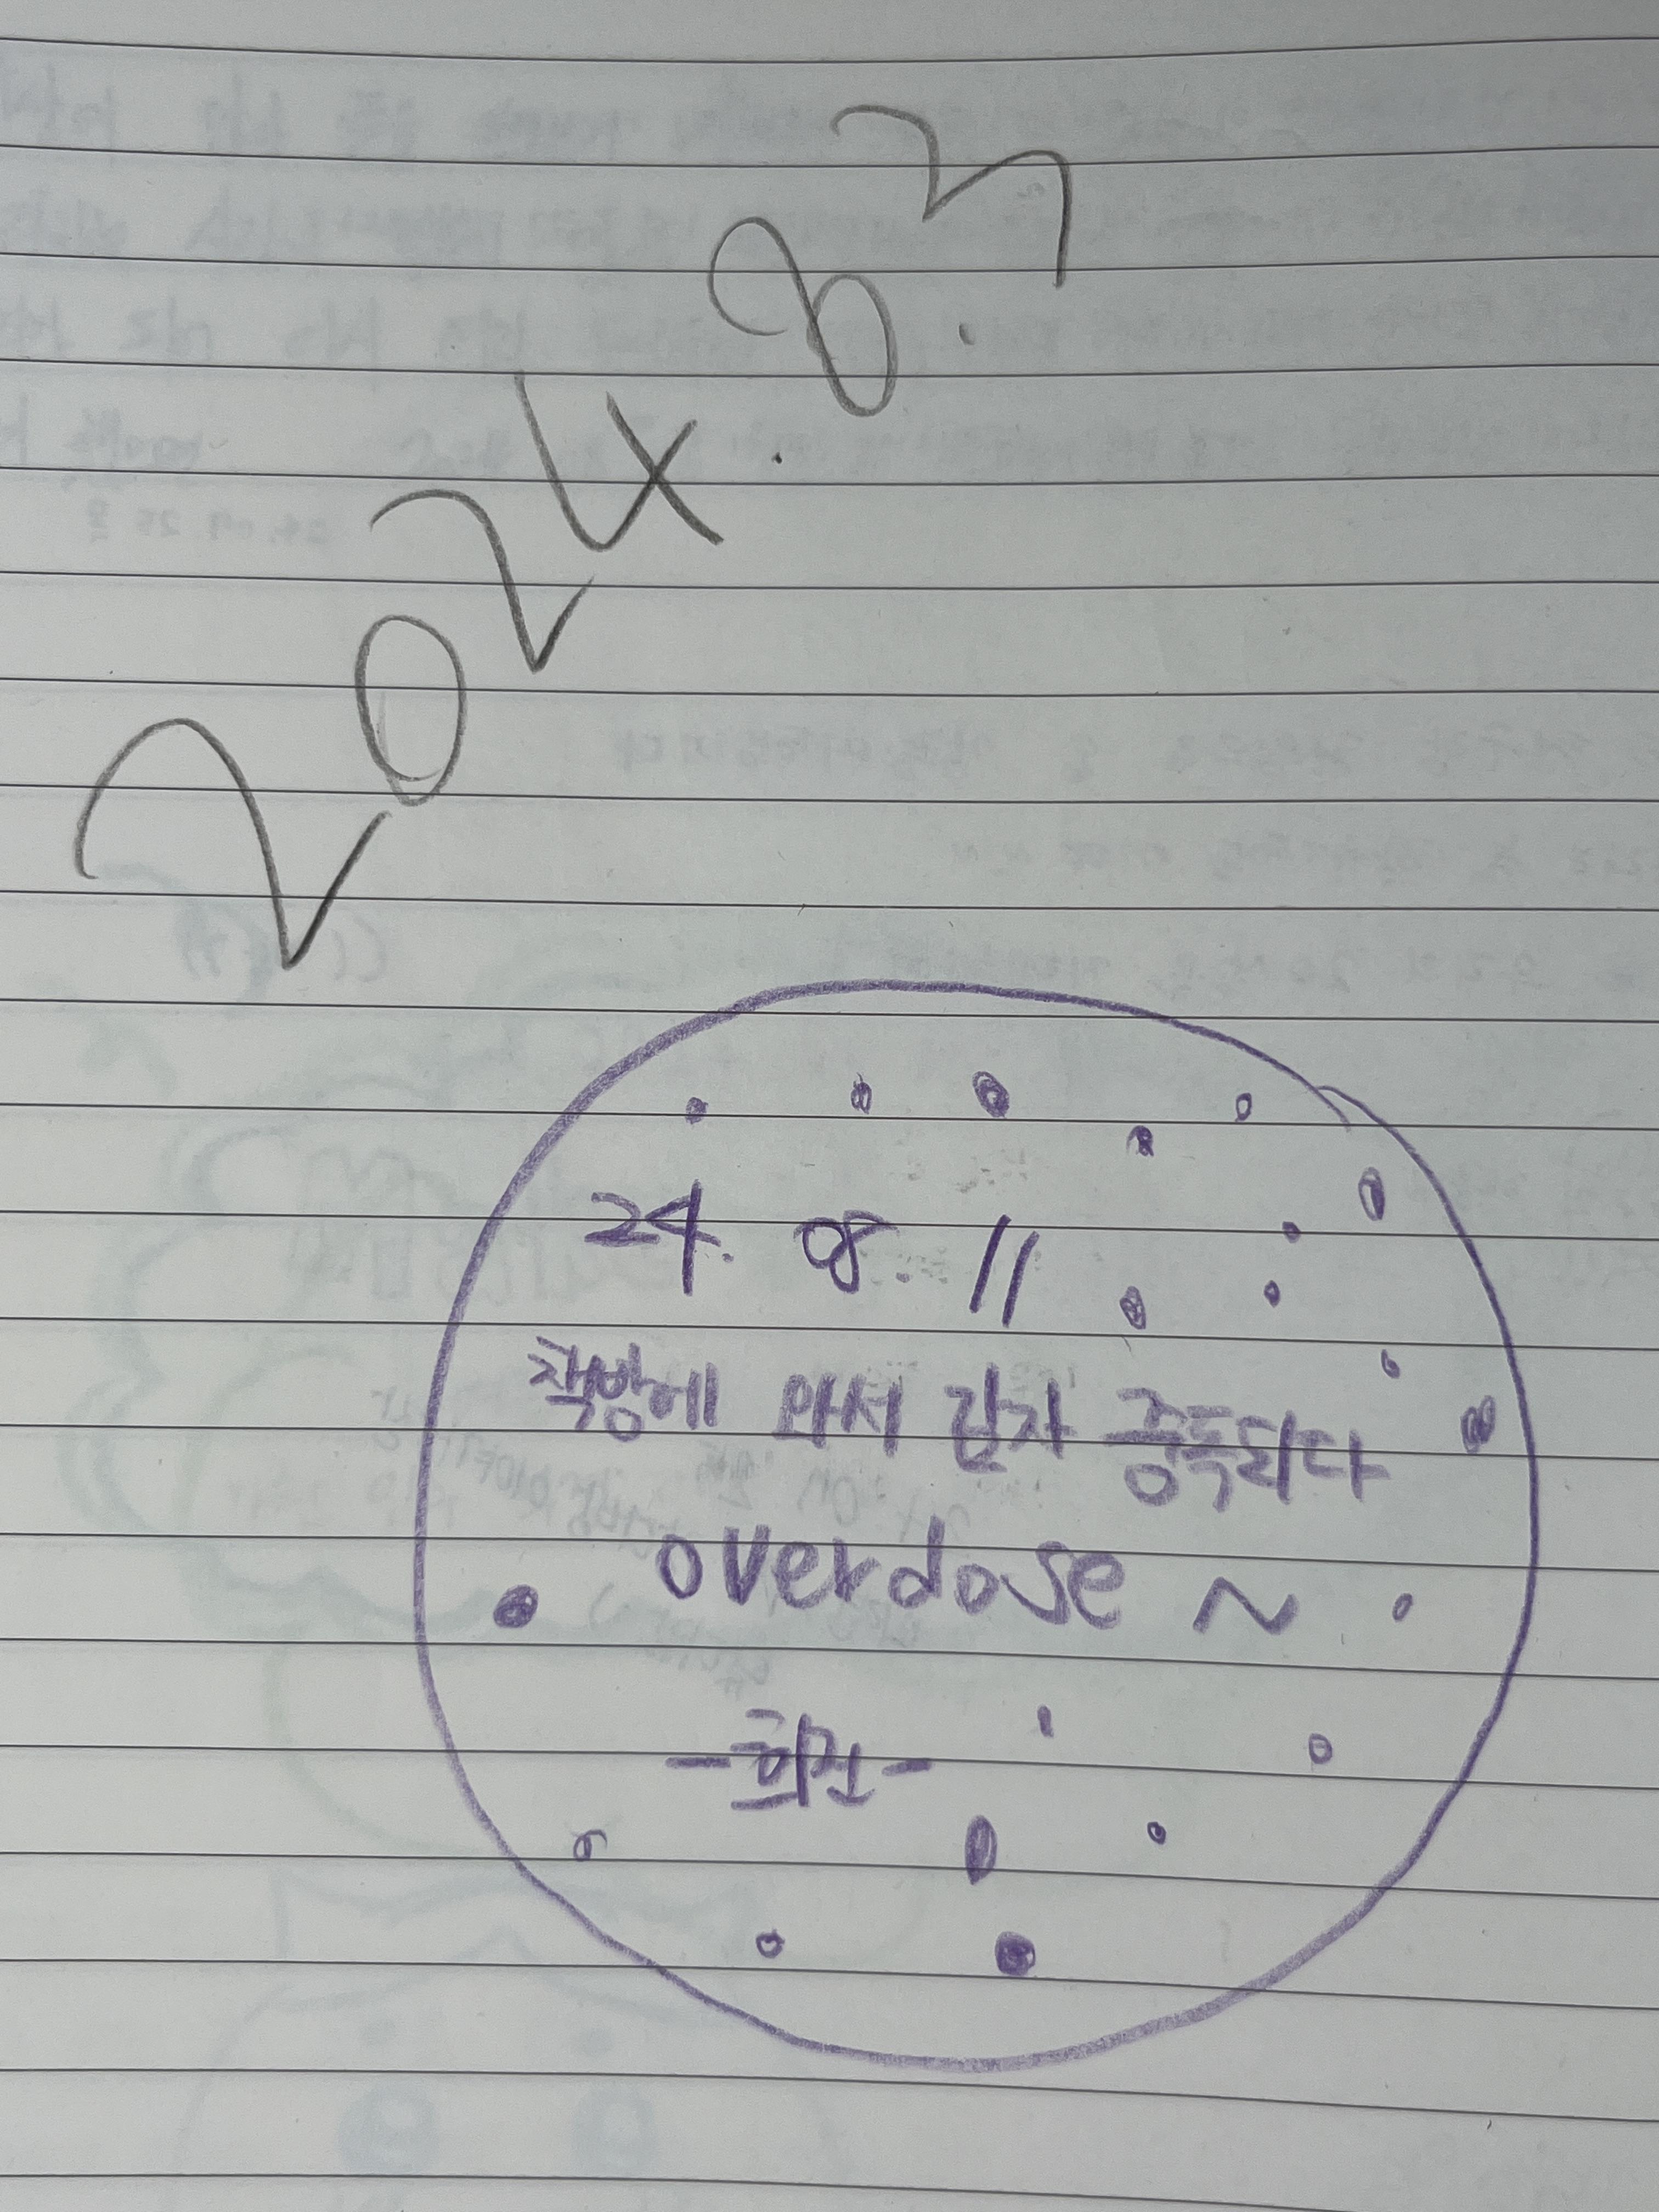 2024.8.7
24. 08. 11
책방에 와서 감자 중독되다
overdose ~
-희진-